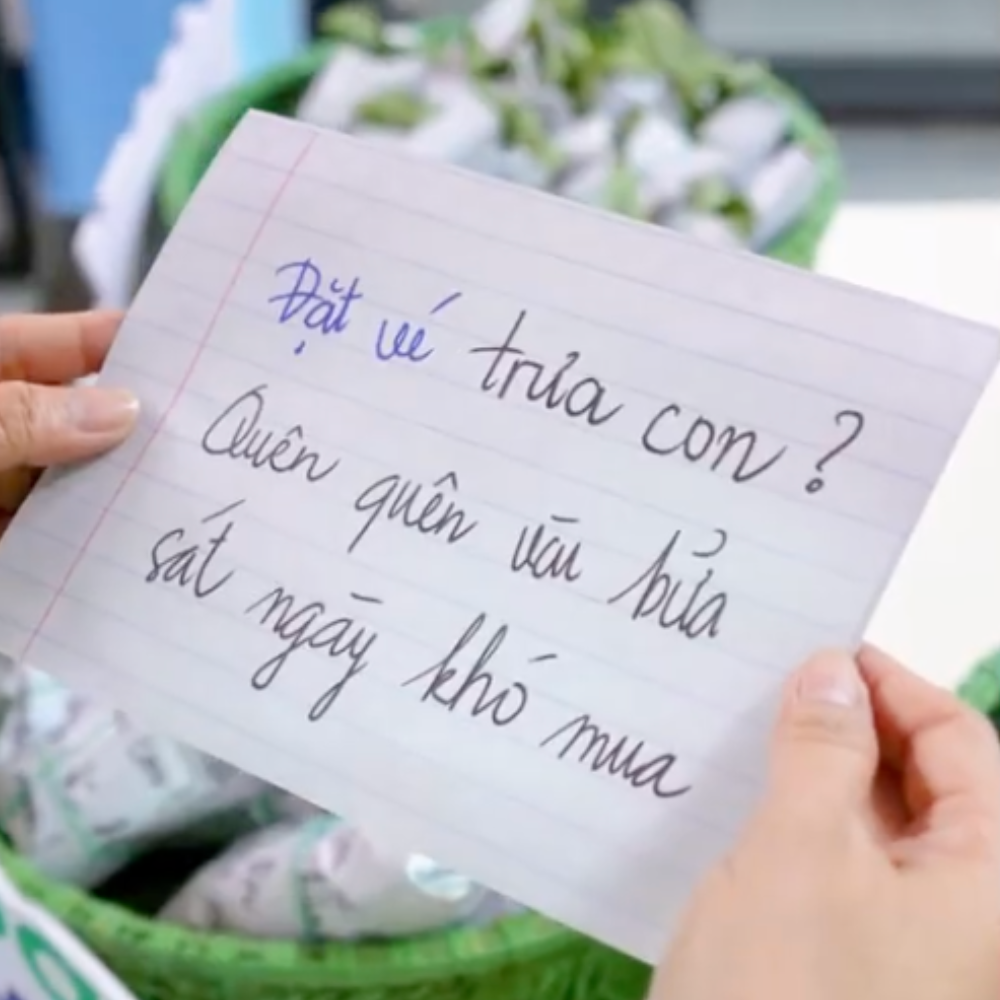 Đặt vé trưa con?
Quên quên vāi bửa
sát ngāy khó mua